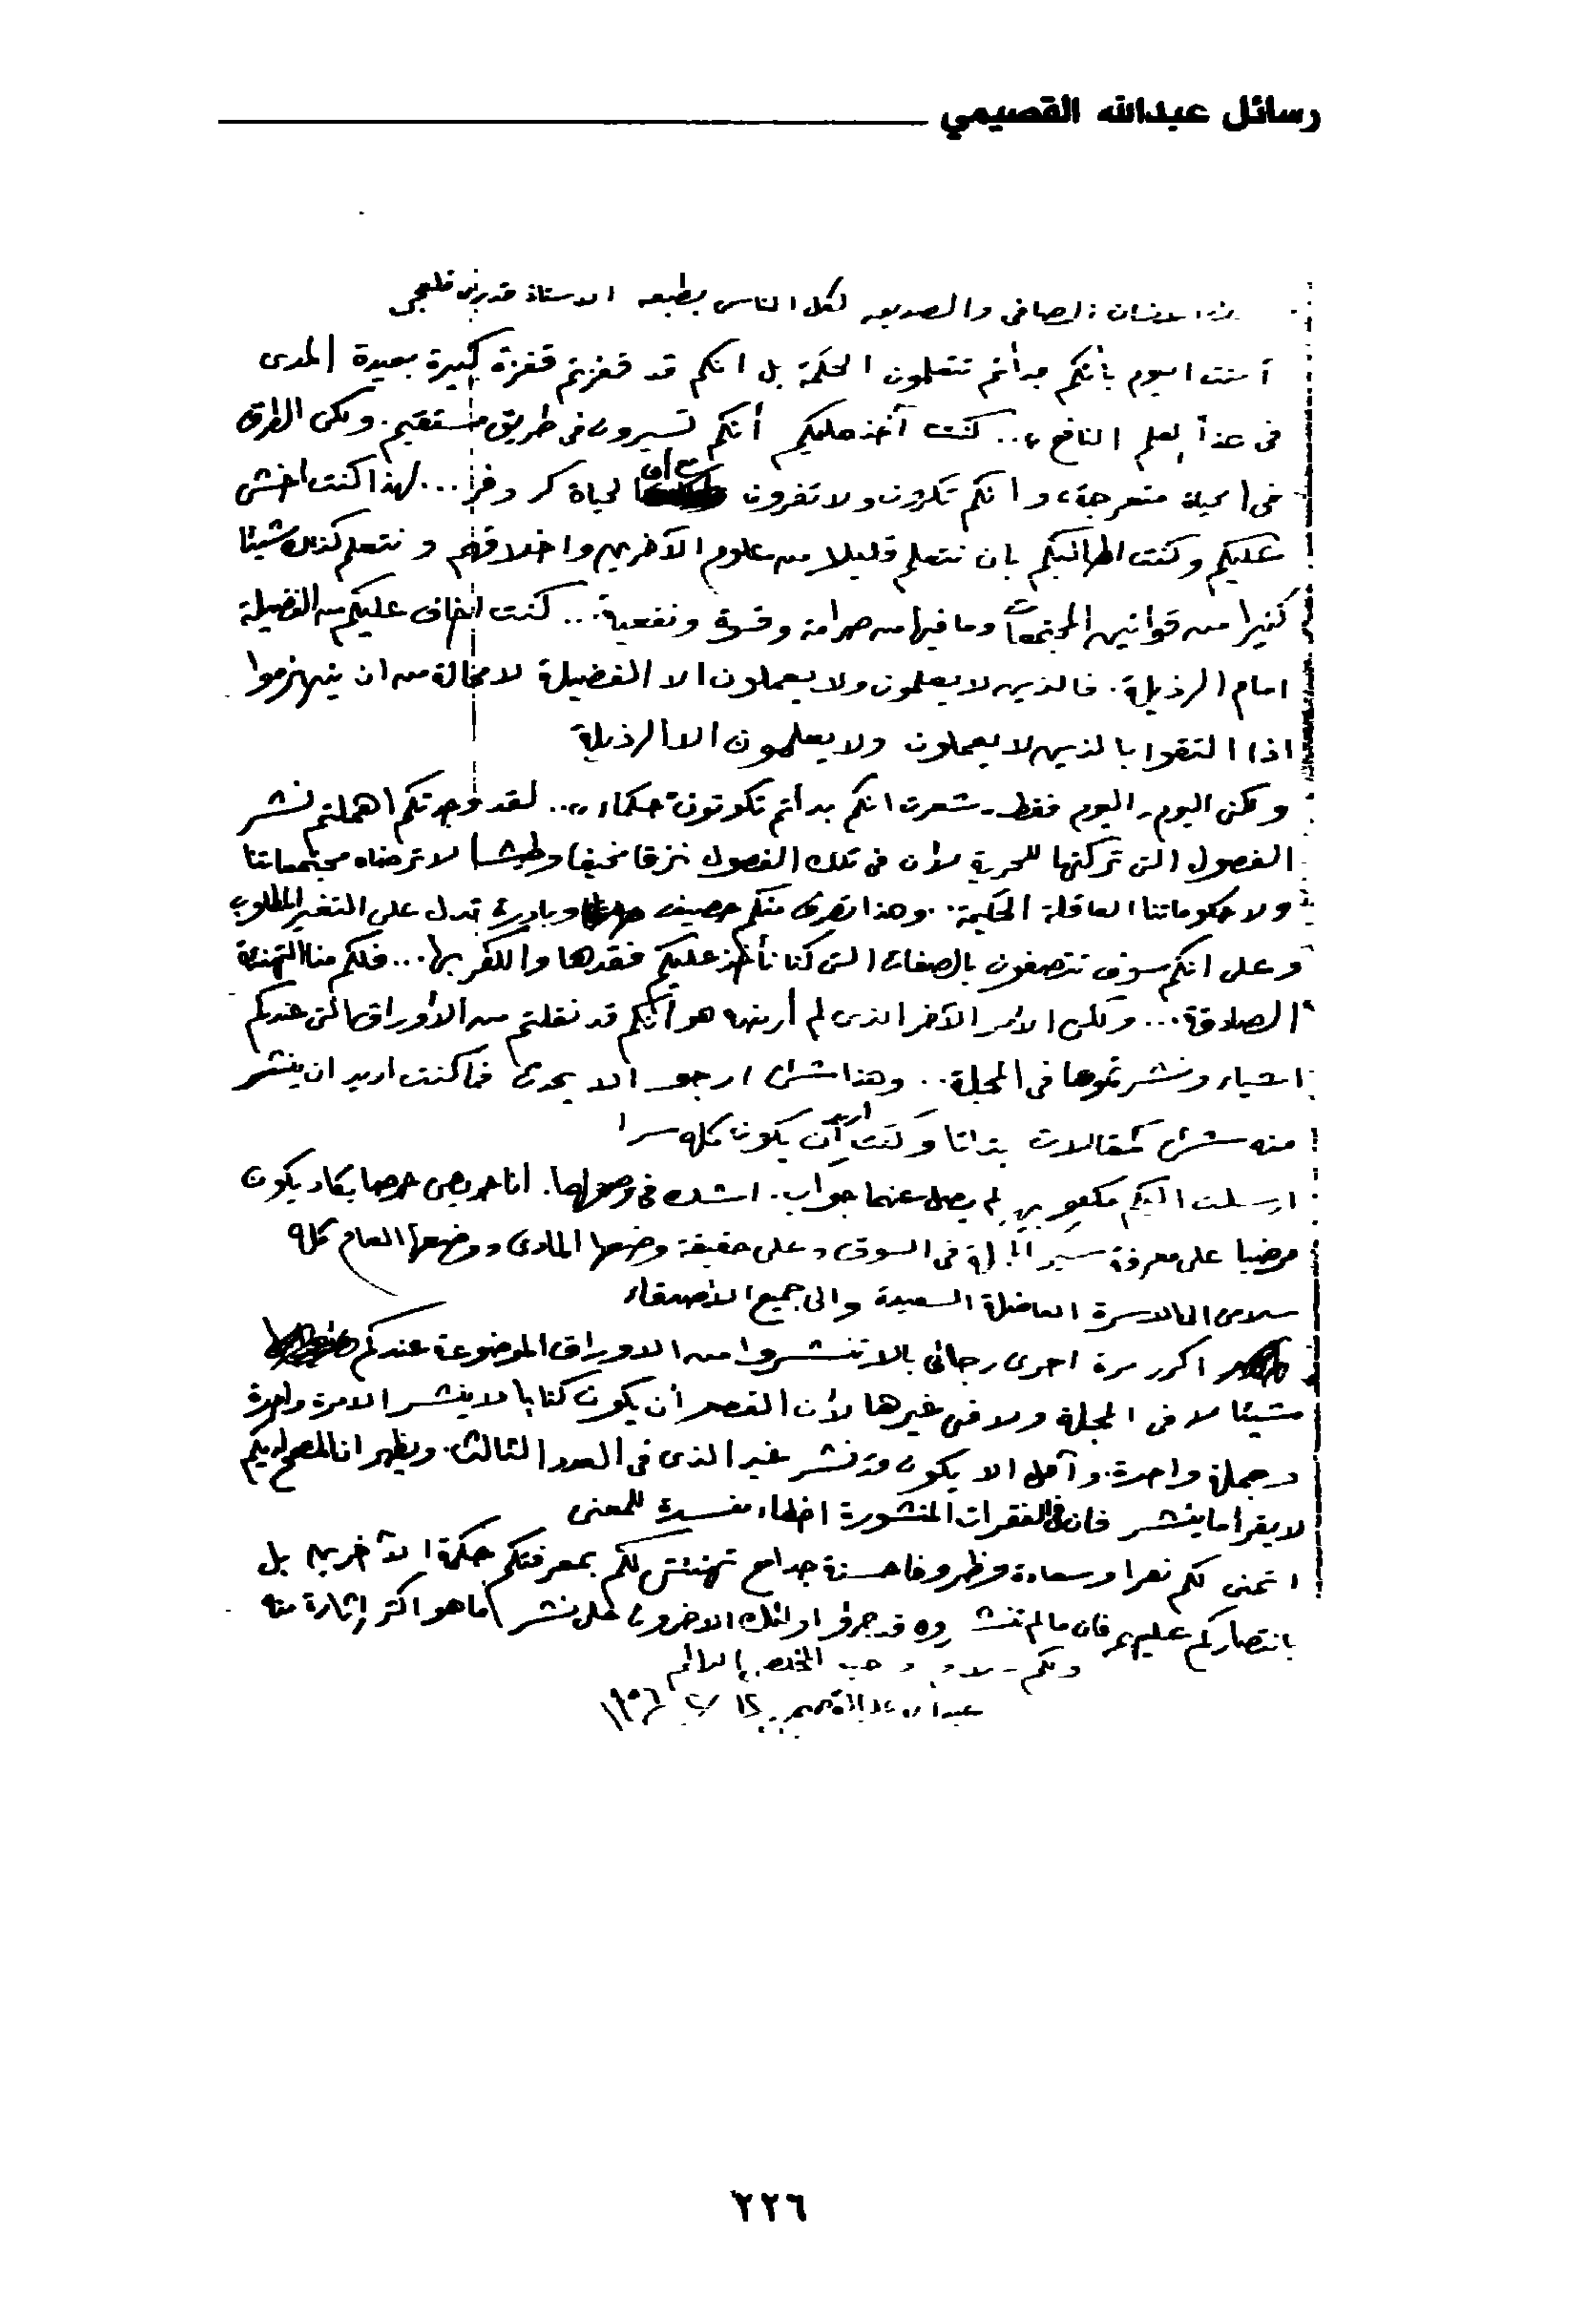 رسائل عبدالله القصيمي
الانسان الصافى والصديق لكل الناس بطبعه الاستاذ قدرى قلعجى
آمنت اليوم بأنكم بدأتم تتعلمون الحكمة بل انكم قد قفزتم قفزة كبيرة بعيدة المدى
فى هذا العلم النافع .. كنت آخذ عليكم أنكم تسيرون فى طريق مستقيم. ولكن الطرق
فى الحياة متعرجة، وانكم تكرون ولا تفرون مع أن الحياة كر وفر ... لهذا كنت اخشى
عليكم وكنت اطالبكم بان نتعلم قليلا من علوم الآخرين واخلاقهم و نتعلم كذلك شيئا
كثيرا من قوانين المجتمعات وما فيها من صرامة وقسوة ونفعية... كنت اخاف عليكم من الفضيلة
امام الرذيلة. فالذين لا يعلمون ولا يعملون الا الفضيلة لا محالة من ان ينهزموا
اذا التقوا بالذين لا يعملون ولا يعلمون الا الرذيلة
ولكنى اليوم - اليوم فقط - شعرت انكم بدأتم تكونون حكماء .. لقد وجدتكم اهملتم نشر
الفصول التى تركتها للحرية لأن فى تلك الفصول نزقا مخيفا وطيشا لا ترضاه مجتمعاتنا
ولا حكوماتنا العاقلة الحكيمة.. وهذا تصرف منكم حصيف وبادرة تدل على التغير المطلوب
وعلى انكم سوف تتصفون بالصفات التى كنا نأخذ عليكم فقدها والكفر بها... فلكم منا التهنئة
الصادقة... ولكن الأمر الآخر الذى لم أرضه هو أنكم قد نقلتم من الأوراق التى عندكم
اشياء ونشرتموها فى المجلة.. وهذا شىء ارجو الا يحدث فما كنت اريد ان ينشر
منه شىء كمقالات بتاتا وكنت اريد أن يكون كله سرا
ارسلت اليكم مكتوبين لم يصل عنهما جواب. اشك فى وصولهما. انا حريص حرصا يكاد يكون
مرضيا على معرفة سير المجلة فى السوق وعلى حقيقة وضعها المادى ووضعها العام كله
سلامى الى الاسرة الفاضلة السعيدة والى جميع الأصدقاء
اكرر مرة اخرى رجائى بالا تنشروا من الاوراق الموضوعة عندكم
شيئا لا فى المجلة ولا فى غيرها لأن القصد أن يكون كتابا لا ينشر الا مرة واحدة
وجملة واحدة. وآمل الا يكون قد نشر غير الذى فى العدد الثالث. ويظهر ان المصحح لديكم
لا يقرأ ما ينشر فان فى الفقرات المنشورة اخطاء مفسدة للمعنى
اتمنى لكم نصرا وسعادة وظروفا حسنة جدا مع تهنئتى لكم بمعرفتكم حكمة الآخرين بل
بانتصاركم عليهم فان ما لم تنشروه قد جرؤ اولئك الاخرون على نشر ما هو اكثر إثارة منه
ولكم سلام وحب المخلص الدائم
عبدالله القصيمى ١٩٥٦
٢٢٦